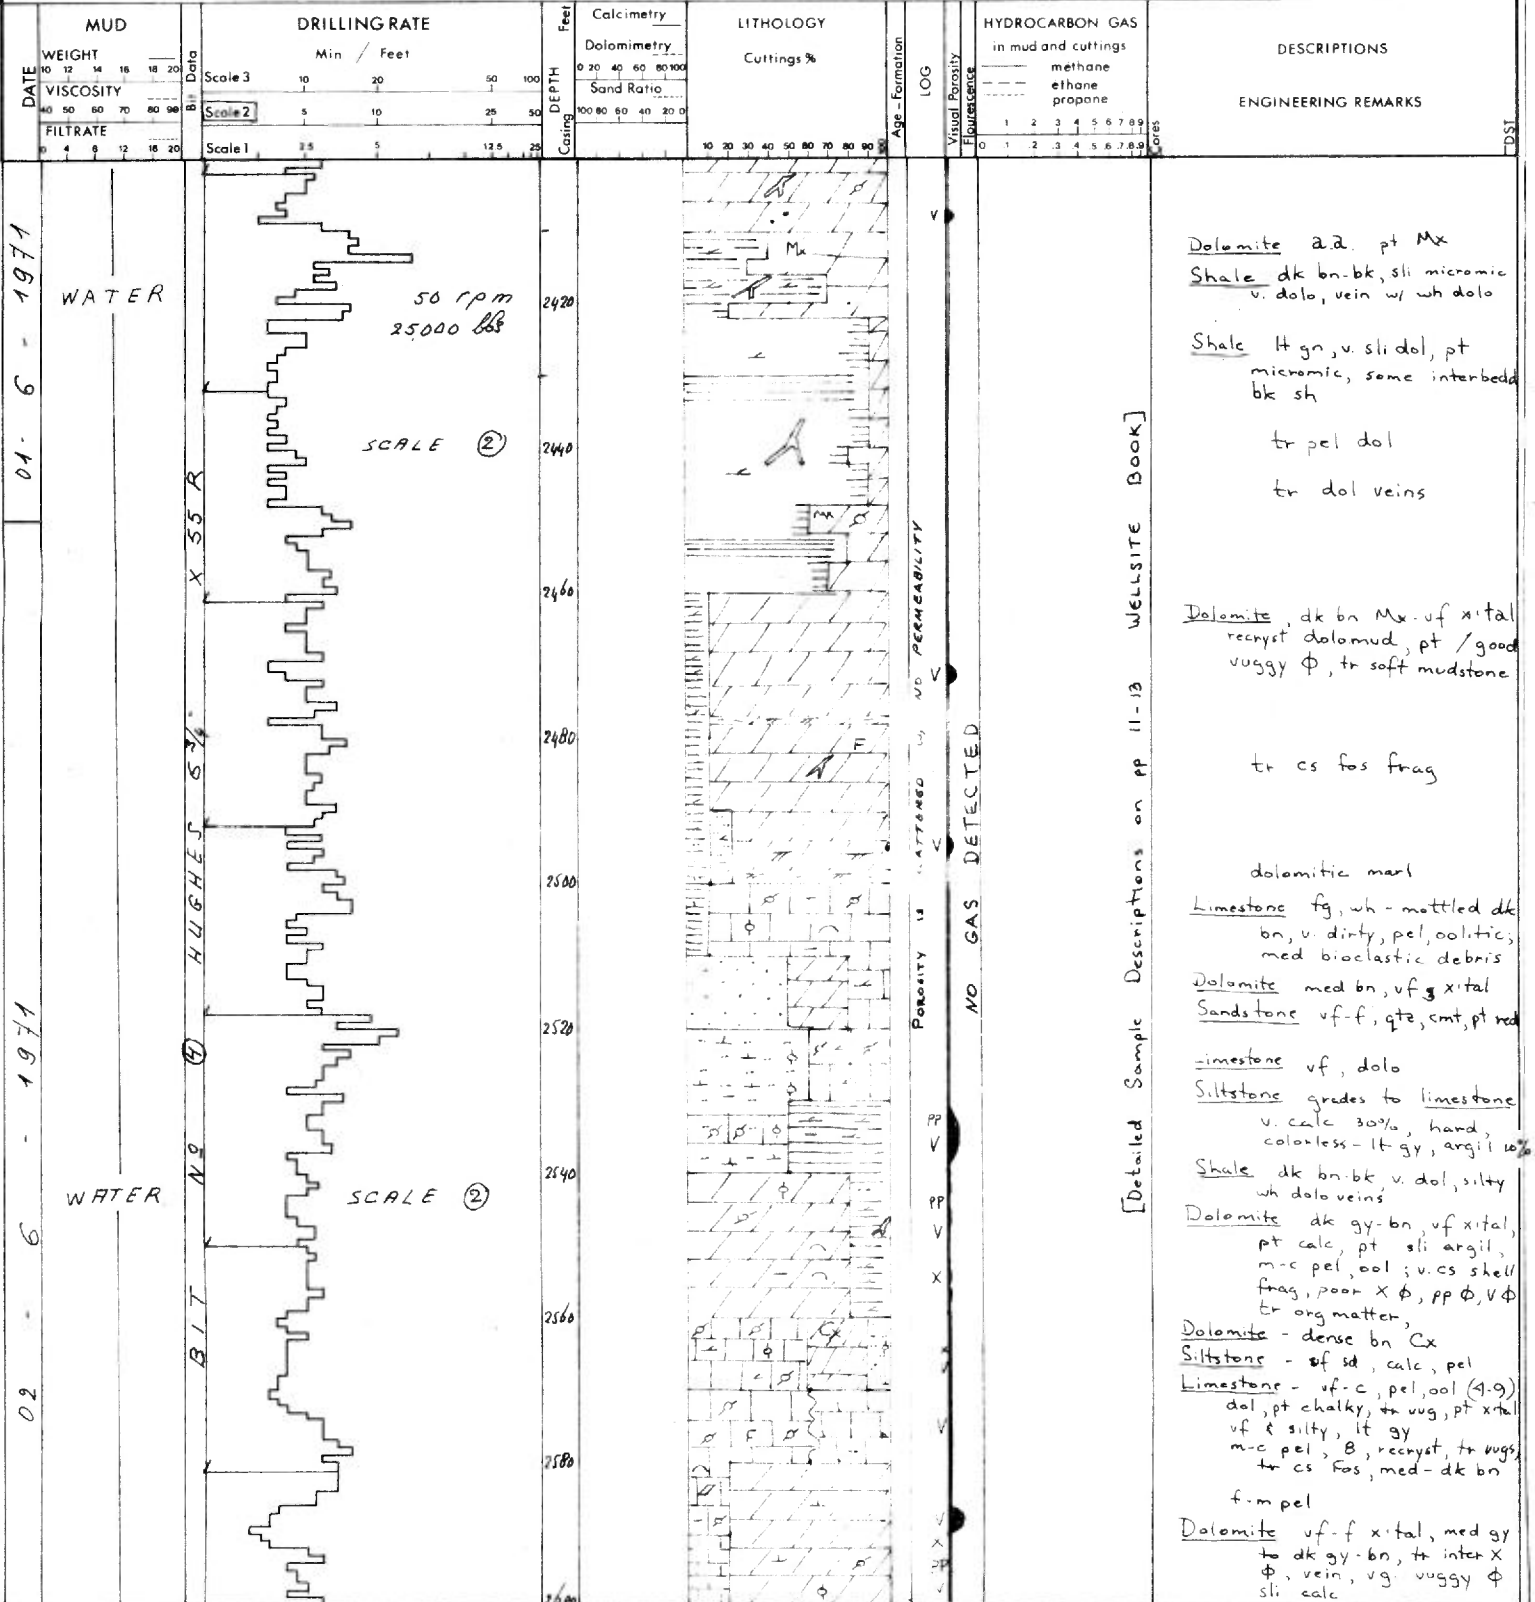 DATE
MUD
WEIGHT
10 12 14 16 18 20
VISCOSITY
40 50 60 70 80 90
FILTRATE
0 4 8 12 16 20
Bit Data
DRILLING RATE
Min / Feet
Scale 3 10 20 50 100
Scale 2 5 10 25 50
Scale 1 2.5 5 12.5 25
DEPTH Feet
Casing
Calcimetry
Dolomimetry
0 20 40 60 80 100
Sand Ratio
100 80 60 40 20 0
LITHOLOGY
Cuttings %
10 20 30 40 50 60 70 80 90
Age - Formation
LOG
Visual Porosity
Flourescence
HYDROCARBON GAS
in mud and cuttings
methane
ethane
propane
1 2 3 4 5 6 7 8 9
0 .1 .2 .3 .4 .5 .6 .7 .8 .9
Cores
DESCRIPTIONS
ENGINEERING REMARKS
DST
01 - 6 - 1971
02 - 6 - 1971
WATER
WATER
BIT Nº (4) HUGHES 5 3/8" X 55 R
50 rpm
25,000 lbs
SCALE (2)
SCALE (2)
2420
2440
2460
2480
2500
2520
2540
2560
2580
Mx
Mx
F
Cx
F
V
V
V
PP
V
PP
V
X
V
V
X
PP
V
NO PERMEABILITY
POROSITY IS
NO GAS DETECTED
[Detailed Sample Descriptions on pp 11-13 WELLSITE BOOK]
Dolomite a.a. pt Mx
Shale dk bn-bk, sli micromic
v. dolo, vein w/ wh dolo
Shale lt gn, v. sli dol, pt
micromic, some interbedd
bk sh
tr pel dol
tr dol veins
Dolomite, dk bn Mx-vf x'tal
recryst dolomud, pt / good
vuggy Φ, tr soft mudstone
tr cs fos frag
dolomitic marl
Limestone fg, wh - mottled dk
bn, v. dirty, pel, oolitic;
med bioclastic debris
Dolomite med bn, vf x'tal
Sandstone vf-f, qtz, cmt, pt red
Limestone vf, dolo
Siltstone grades to limestone
v. calc 30%, hard,
colorless - lt gy, argil 10%
Shale dk bn-bk, v. dol, silty
wh dolo veins
Dolomite dk gy-bn, vf x'tal,
pt calc, pt sli argil,
m-c pel, ool; v.cs shell
frag, poor X Φ, pp Φ, V Φ
tr org matter,
Dolomite - dense bn Cx
Siltstone - vf sd, calc, pel
Limestone - vf-c, pel, ool (4-9)
dol, pt chalky, tr vug, pt xtal
vf & silty, lt gy
m-c pel, 8, recryst, tr vugs,
tr cs Fos, med-dk bn
f-m pel
Dolomite vf-f x'tal, med gy
to dk gy-bn, tr inter X
Φ, vein, vg. vuggy Φ
sli calc